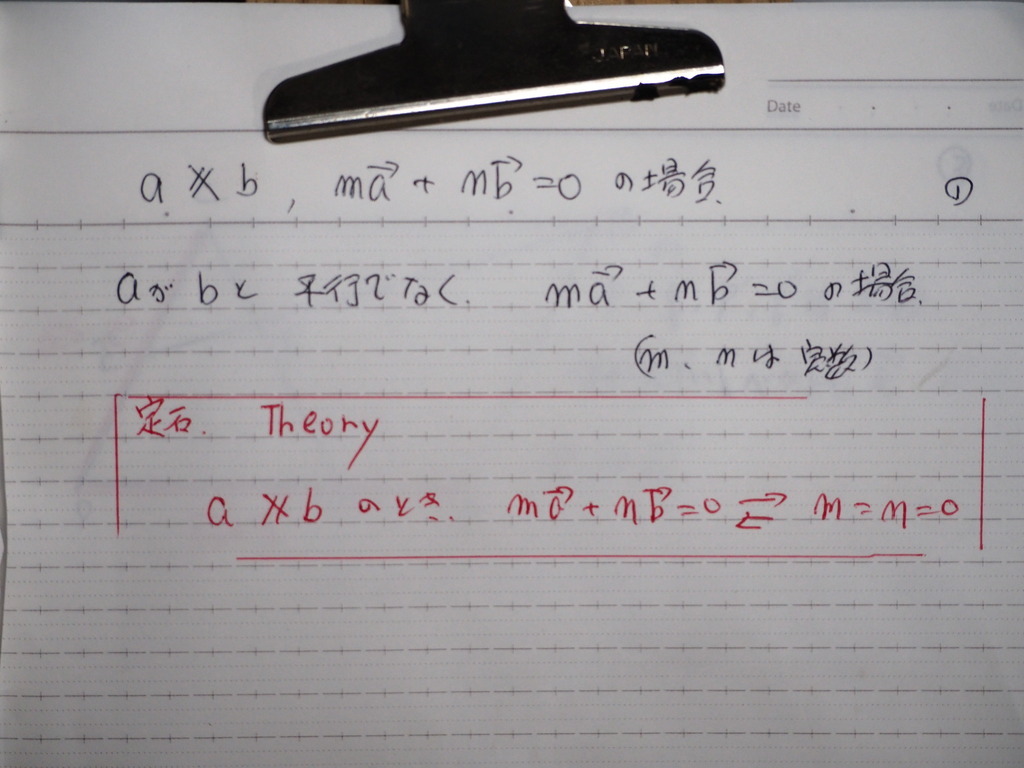 JAPAN
Date
a ∦ b , ma⃗ + nb⃗ = 0 の場合. ①
aがbと 平行でなく. ma⃗ + nb⃗ = 0 の場合.
(m、nは 実数)
定石. Theory
a ∦ b のとき. ma⃗ + nb⃗ = 0 ⇄ m = n = 0